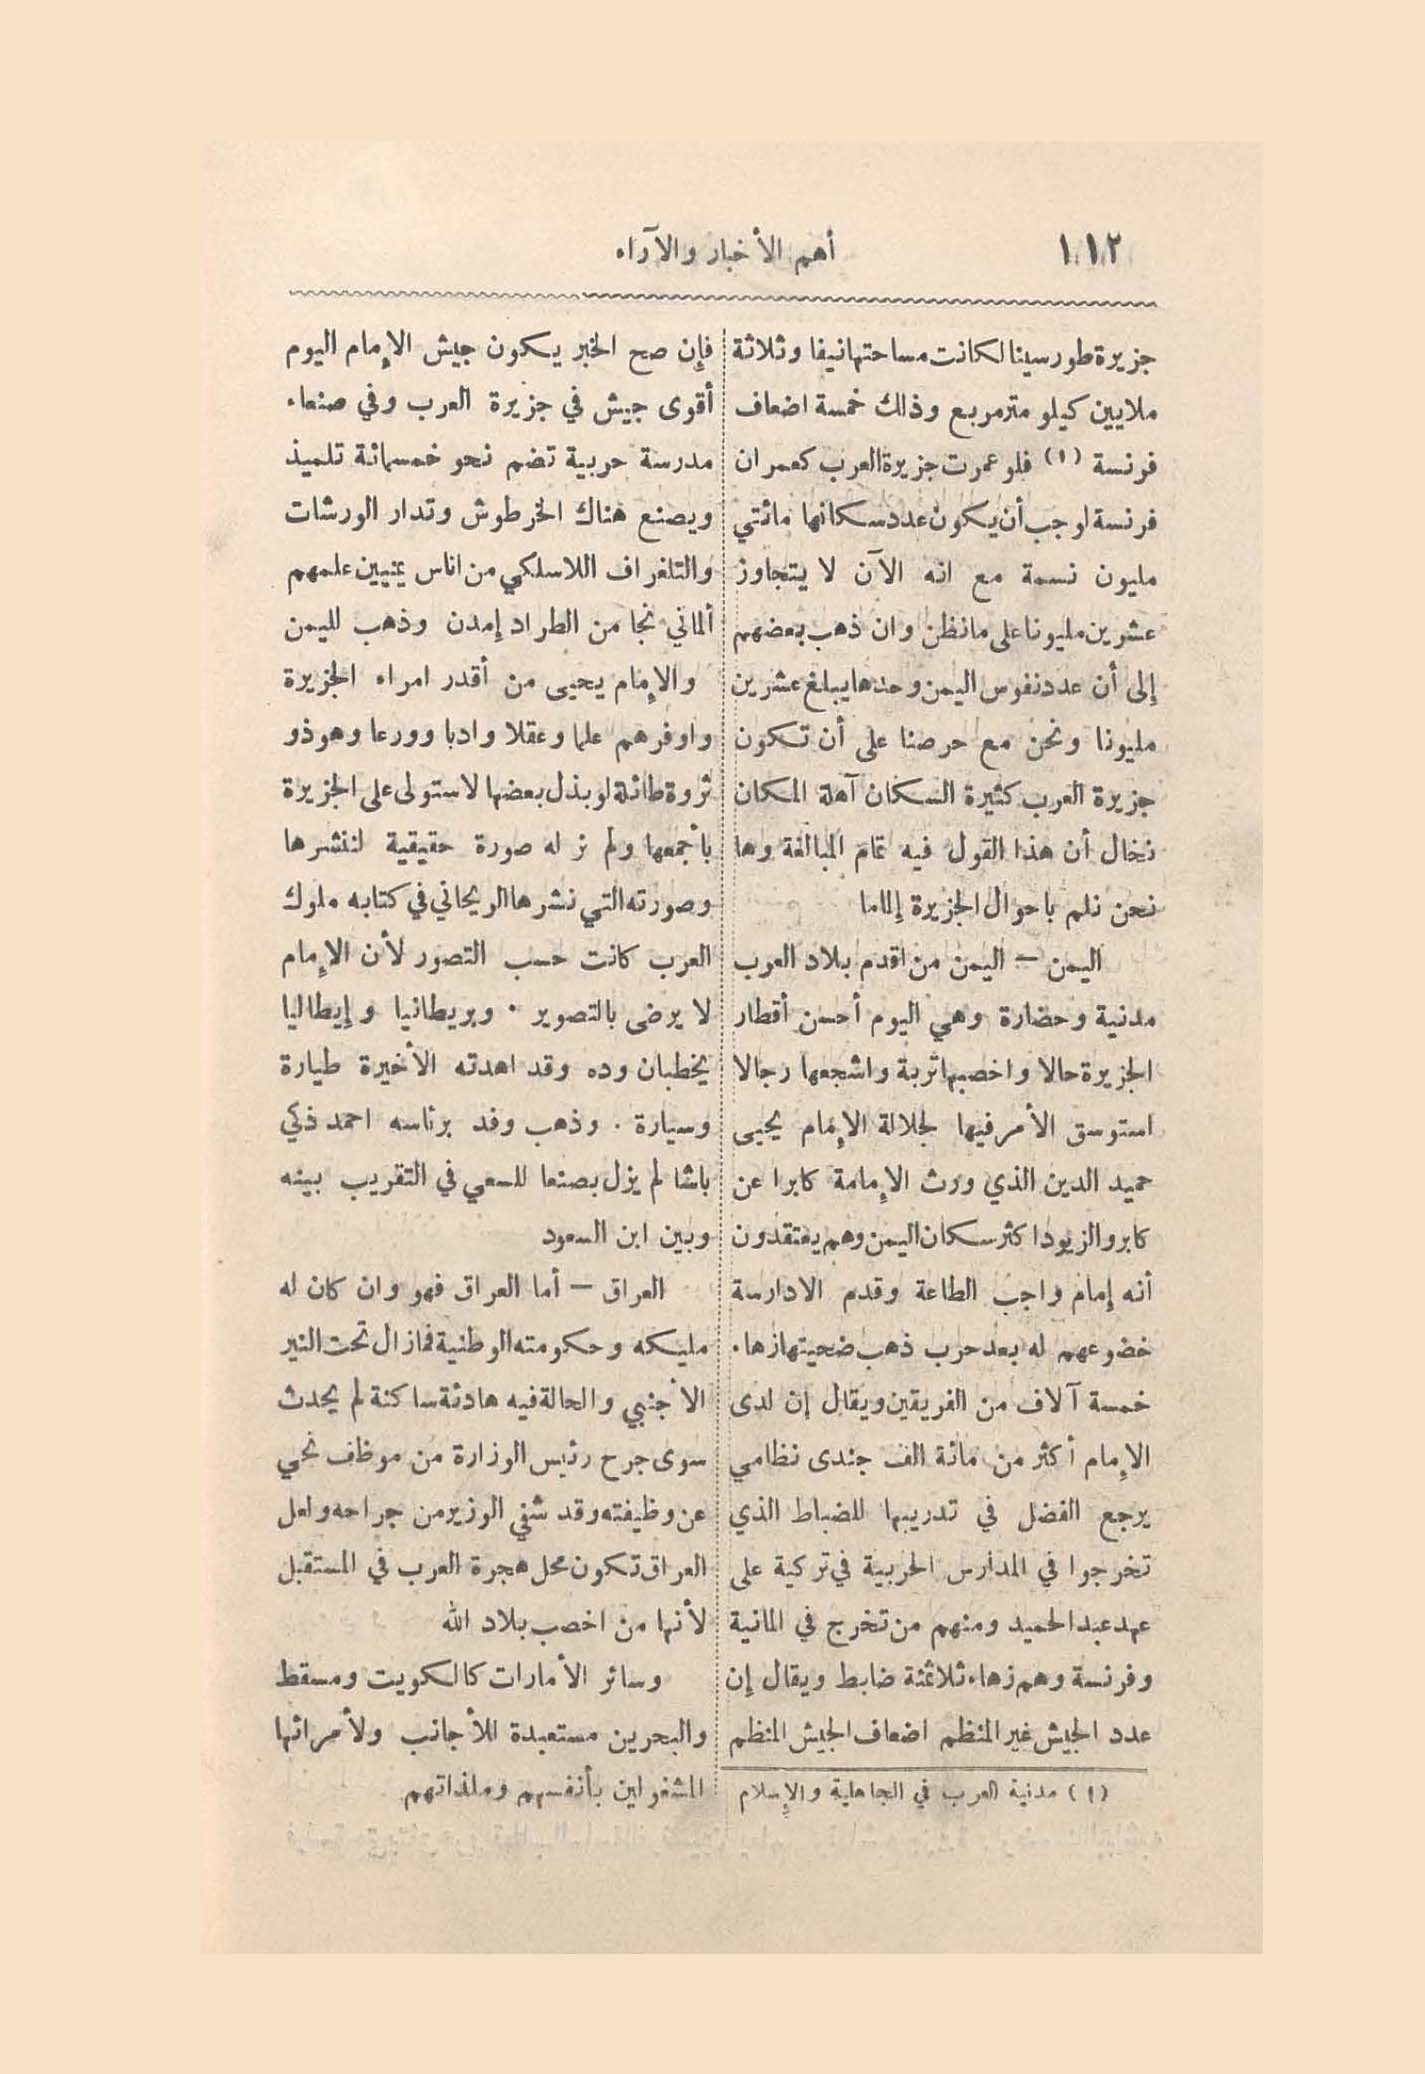 ١١٢
أهم الأخبار والآراء
جزيرة طورسينا لكانت مساحتها نيفا وثلاثة
ملايين كيلو متر مربع وذلك خمسة اضعاف
فرنسة (١) فلو عمرت جزيرة العرب كعمران
فرنسة لوجب أن يكون عدد سكانها مائتي
مليون نسمة مع انه الآن لا يتجاوز
عشرين مليونا على مانظن وان ذهب بعضهم
إلى أن عدد نفوس اليمن وحدها يبلغ عشرين
مليونا ونحن مع حرصنا على أن تكون
جزيرة العرب كثيرة السكان آهلة المكان
نخال أن هذا القول فيه تمام المبالغة وها
نحن نلم باحوال الجزيرة إلماما
اليمن — اليمن من اقدم بلاد العرب
مدنية وحضارة وهي اليوم أحسن أقطار
الجزيرة حالا واخصبها تربة واشجعها رجالا
استوسق الأمر فيها لجلالة الإمام يحيى
حميد الدين الذي ورث الإمامة كابرا عن
كابر والزيود اكثر سكان اليمن وهم يعتقدون
أنه إمام واجب الطاعة وقدم الادارسة
خضوعهم له بعد حرب ذهب ضحيتها زهاء
خمسة آلاف من الفريقين ويقال إن لدى
الإمام أكثر من مائة الف جندى نظامي
يرجع الفضل في تدريبها للضباط الذي
تخرجوا في المدارس الحربية في تركية على
عهد عبد الحميد ومنهم من تخرج في المانية
وفرنسة وهم زهاء ثلاثمئة ضابط ويقال إن
عدد الجيش غير المنظم اضعاف الجيش المنظم
(١) مدنية العرب في الجاهلية والإسلام
فإن صح الخبر يكون جيش الإمام اليوم
أقوى جيش في جزيرة العرب وفي صنعاء
مدرسة حربية تضم نحو خمسمائة تلميذ
ويصنع هناك الخرطوش وتدار الورشات
والتلغراف اللاسلكي من اناس يمنيين علمهم
ألماني نجا من الطراد إمدن وذهب لليمن
والإمام يحيى من أقدر امراء الجزيرة
واوفرهم علما وعقلا وادبا وورعا وهو ذو
ثروة طائلة لو بذل بعضها لاستولى على الجزيرة
بأجمعها ولم نر له صورة حقيقية لننشرها
وصورته التي نشرها الريحاني في كتابه ملوك
العرب كانت حسب التصور لأن الإمام
لا يرضى بالتصوير . وبريطانيا وإيطاليا
يخطبان وده وقد اهدته الأخيرة طيارة
وسيارة . وذهب وفد برئاسه احمد ذكي
باشا لم يزل بصنعا للسعي في التقريب بينه
وبين ابن السعود
العراق — أما العراق فهو وان كان له
مليكه وحكومته الوطنية فمازال تحت النير
الأجنبي والحالة فيه هادئة ساكنة لم يحدث
سوى جرح رئيس الوزارة من موظف نحي
عن وظيفته وقد شفي الوزير من جراحه ولعل
العراق تكون محل هجرة العرب في المستقبل
لأنها من اخصب بلاد الله
وسائر الأمارات كالكويت ومسقط
والبحرين مستعبدة للأجانب ولأمرائها
المشغولين بأنفسهم وملذاتهم